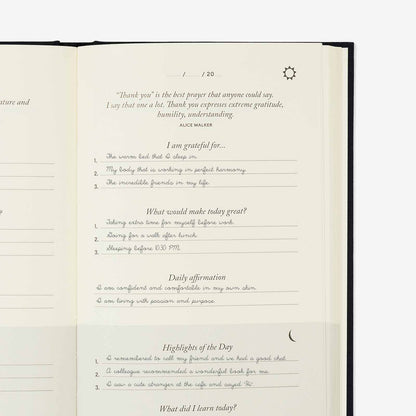 / / 20
ature and
"Thank you" is the best prayer that anyone could say.
I say that one a lot. Thank you expresses extreme gratitude,
humility, understanding.
ALICE WALKER
I am grateful for...
1. The warm bed that I sleep in.
2. My body that is working in perfect harmony.
3. The incredible friends in my life.
What would make today great?
1. Taking extra time for myself before work.
2. Going for a walk after lunch.
3. Sleeping before 10:30 PM.
Daily affirmation
I am confident and comfortable in my own skin.
I am living with passion and purpose.
Highlights of the Day
1. I remembered to call my friend and we had a good chat.
2. A colleague recommended a wonderful book for me.
3. I saw a cute stranger at the cafe and sayed Hi!
What did I learn today?